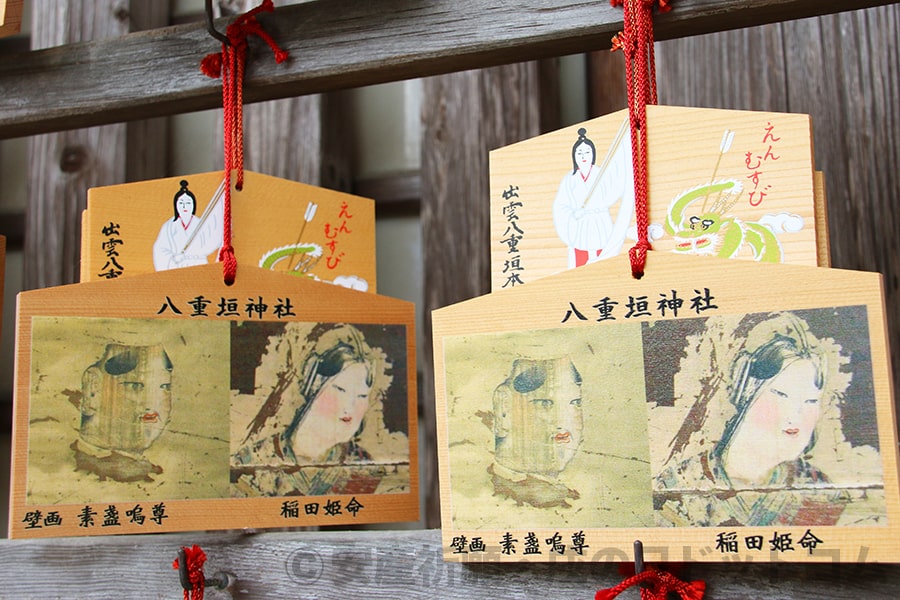 出雲八重
えん
むすび
八重垣神社
壁画 素盞嗚尊
稲田姫命
出雲八重垣本
えん
むすび
八重垣神社
壁画 素盞嗚尊
稲田姫命